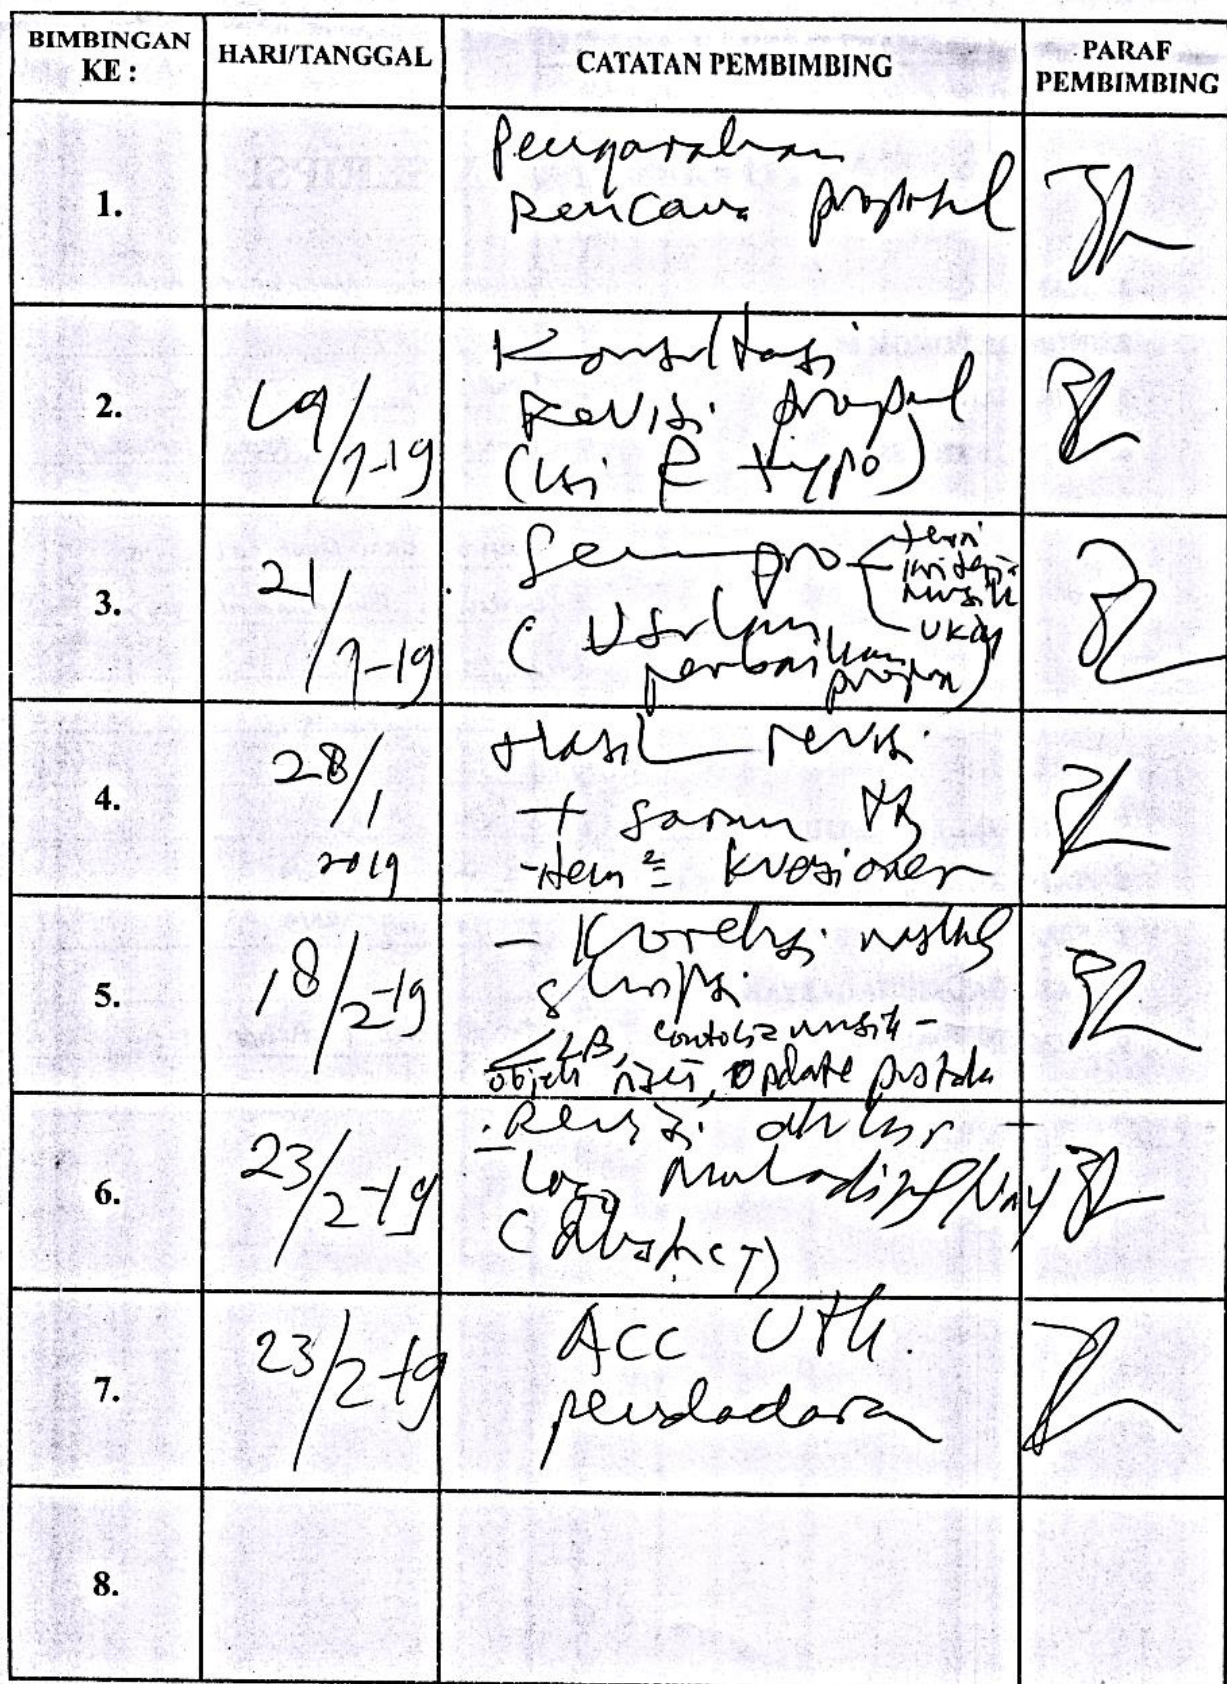 BIMBINGAN KE : HARI/TANGGAL CATATAN PEMBIMBING PARAF PEMBIMBING
1. Pengarahan
Rencana proposal
2. 19/1-19 Konsultasi
Revisi proposal
(isi & typo)
3. 21/1-19 Sempro
teori
kriteria
musik
(Usulan
perbaikan
4. 28/1 2019 Hasil revisi
+ saran
item² kuesioner
5. 18/2-19 - Koreksi naskah
skripsi
LB, contoh2 musik -
objek riset, update pustaka
6. 23/2-19 - Revisi akhir +
Logo
(Abstract)
7. 23/2-19 Acc Utk.
pendadaran
8.